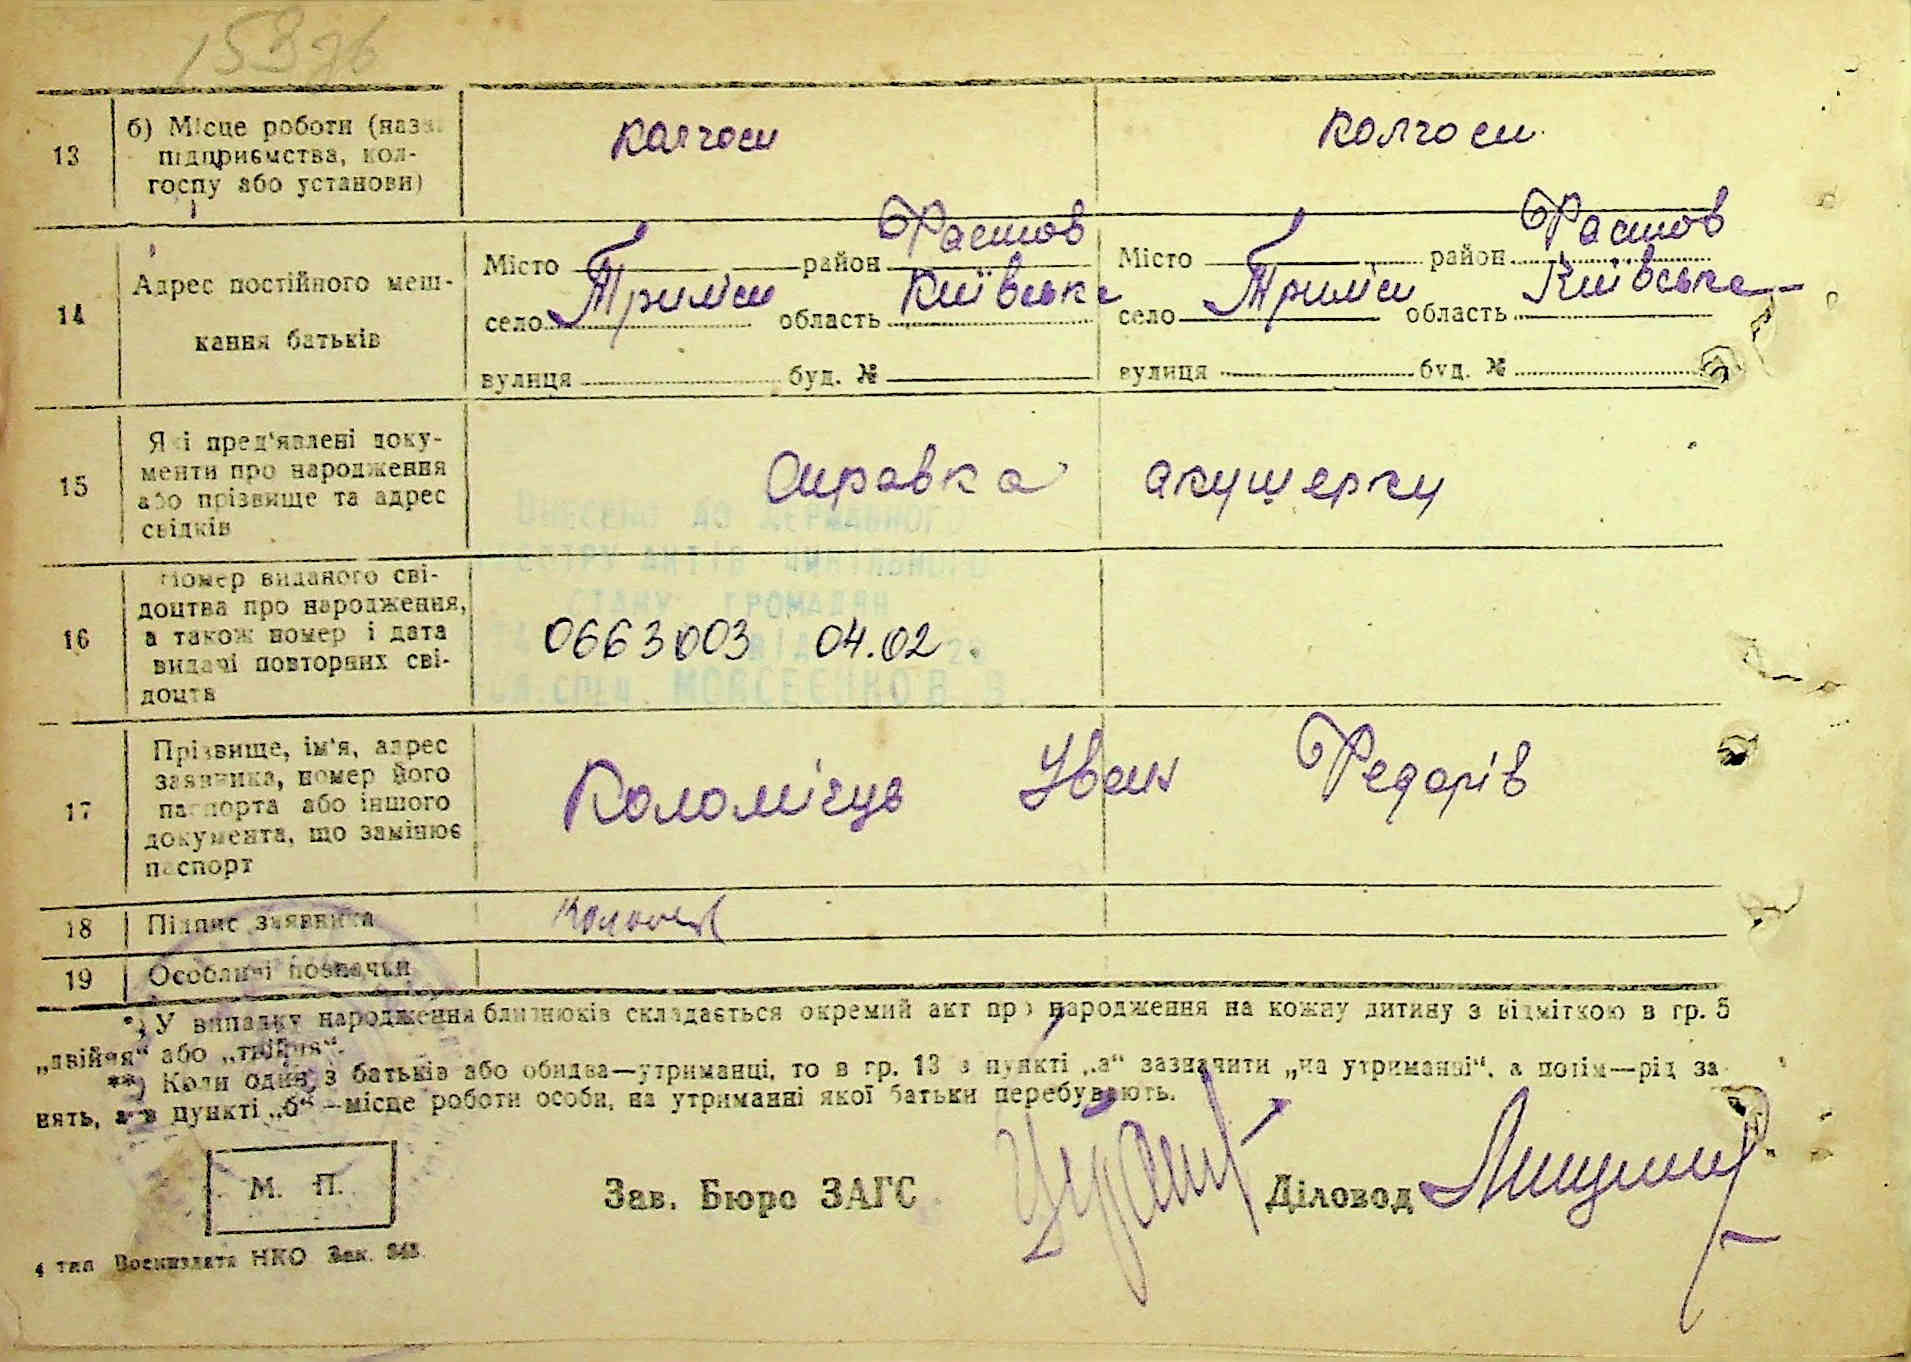 13
б) Місце роботи (назва
підприємства, кол-
госпу або установи)
колгосп
колгосп
14
Адрес постійного меш-
кання батьків
Місто район Фастов
село Триліси область Київська
вулиця буд. №
Місто район Фастов
село Триліси область Київська
вулиця буд. №
15
Які пред'явлені доку-
менти про народження
або прізвище та адрес
свідків
Справка акушерки
ВНЕСЕНО ДО ДЕРЖАВНОГО
РЕЄСТРУ АКТІВ ЦИВІЛЬНОГО
СТАНУ ГРОМАДЯН
СПЕЦ. МОІСЕЄНКО В. В.
16
Номер виданого сві-
доцтва про народження,
а також номер і дата
видачі повторних сві-
доцтв
0663003 04.02.
17
Прізвище, ім'я, адрес
заявника, номер його
паспорта або іншого
документа, що замінює
паспорт
Коломієць Іван Федорів
18
Підпис заявника
19
Особливі позначки
*) У випадку народження близнюків складається окремий акт про народження на кожну дитину з відміткою в гр. 5
„двійня“ або „трійня“.
**) Коли один з батьків або обидва—утриманці, то в гр. 13 в пункті „а“ зазначити „на утриманні“, а потім—рід за-
нять, а в пункті „б“—місце роботи особи, на утриманні якої батьки перебувають.
М. П.
Зав. Бюро ЗАГС
Діловод
4 тип Воениздата НКО Зак. 343.